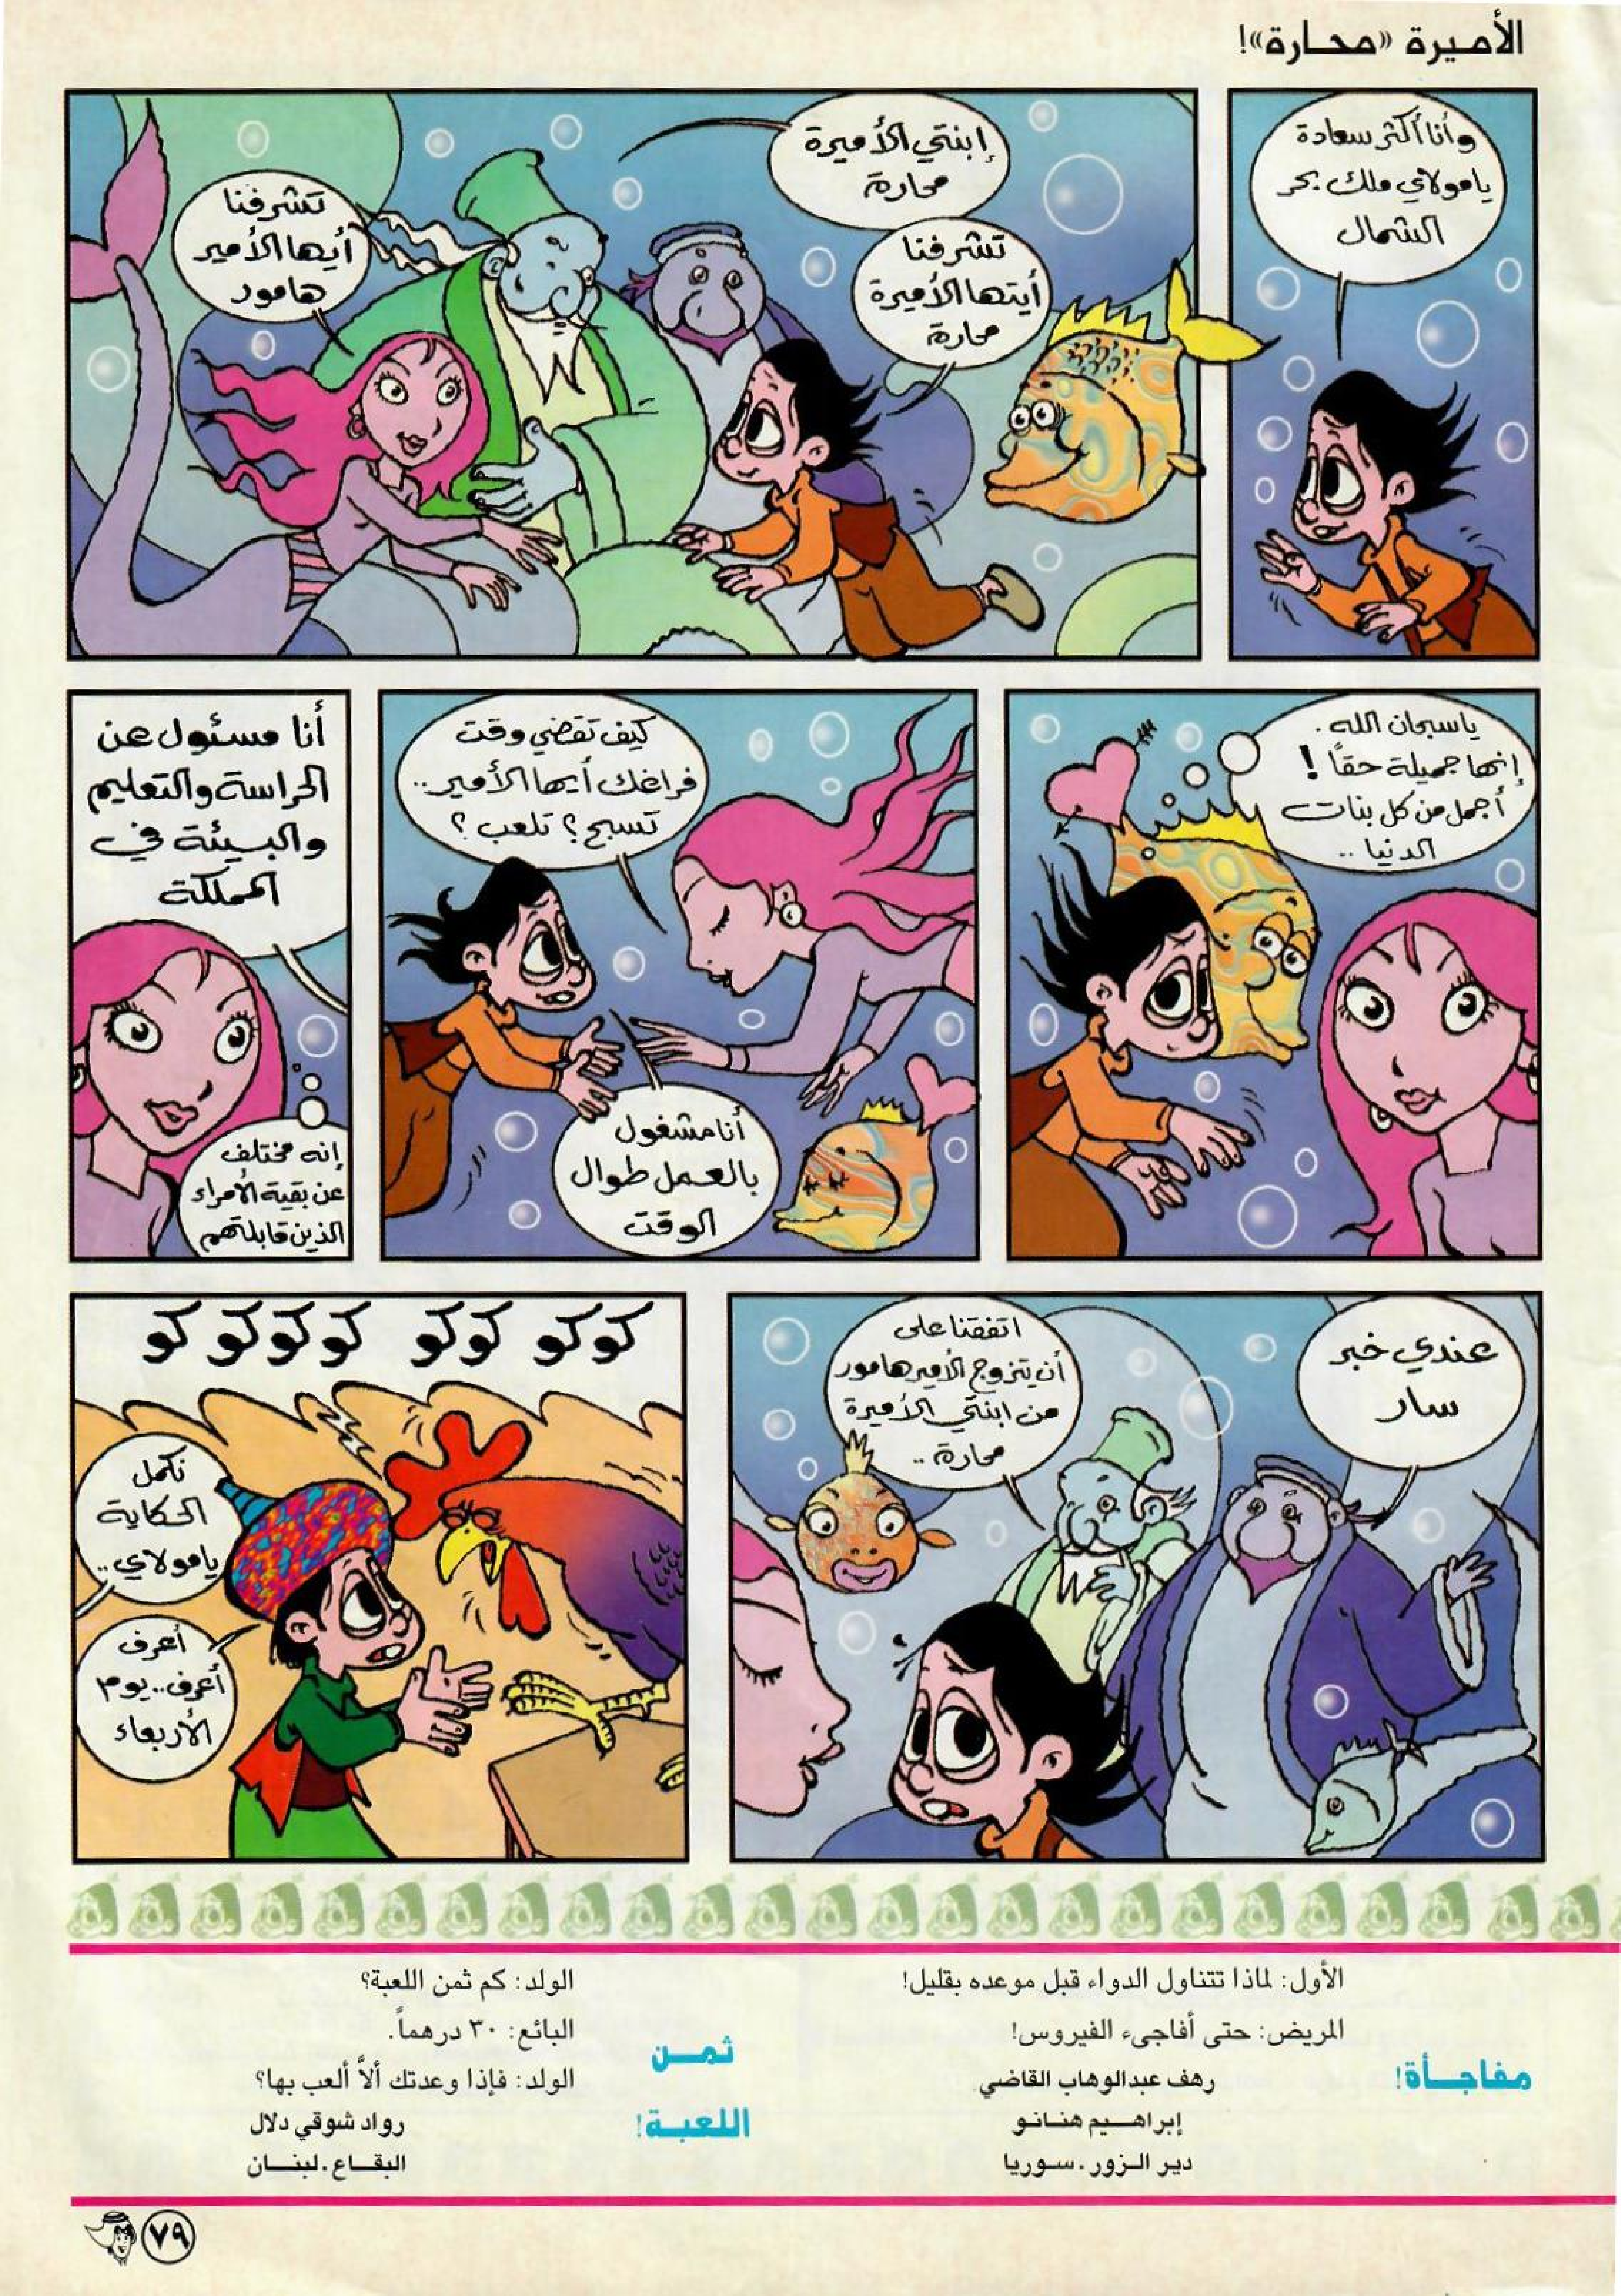 الأميرة «محارة»!
وأنا أكثر سعادة
يا مولاي ملك بحر
الشمال
إبنتي الأميرة
محارة
تشرفنا
أيتها الأميرة
محارة
تشرفنا
أيها الأمير
هامور
يا سبحان الله .
إنها جميلة حقاً !
أجمل من كل بنات
الدنيا ..
كيف تقضي وقت
فراغك أيها الأمير ..
تسبح ؟ تلعب ؟
أنا مشغول
بالعمل طوال
الوقت
أنا مسئول عن
الحراسة والتعليم
والبيئة في
المملكة
إنه مختلف
عن بقية الأمراء
الذين قابلتهم
عندي خبر
سار
اتفقنا على
أن يتزوج الأمير هامور
من ابنتي الأميرة
محارة ..
كوكو كوكو كوكوكو كو
نكمل
الحكاية
يا مولاي ..
أعرف
أعرف .. يوم
الأربعاء
مفاجـأة!
الأول: لماذا تتناول الدواء قبل موعده بقليل!
المريض: حتى أفاجىء الفيروس!
رهف عبدالوهاب القاضي
إبراهـيم هنـانـو
دير الـزور . سـوريا
ثمـن
اللعبـة!
الولد: كم ثمن اللعبة؟
البائع: ٣٠ درهماً.
الولد: فإذا وعدتك ألاَّ ألعب بها؟
رواد شوقي دلال
البقـاع . لبنـان
٧٩